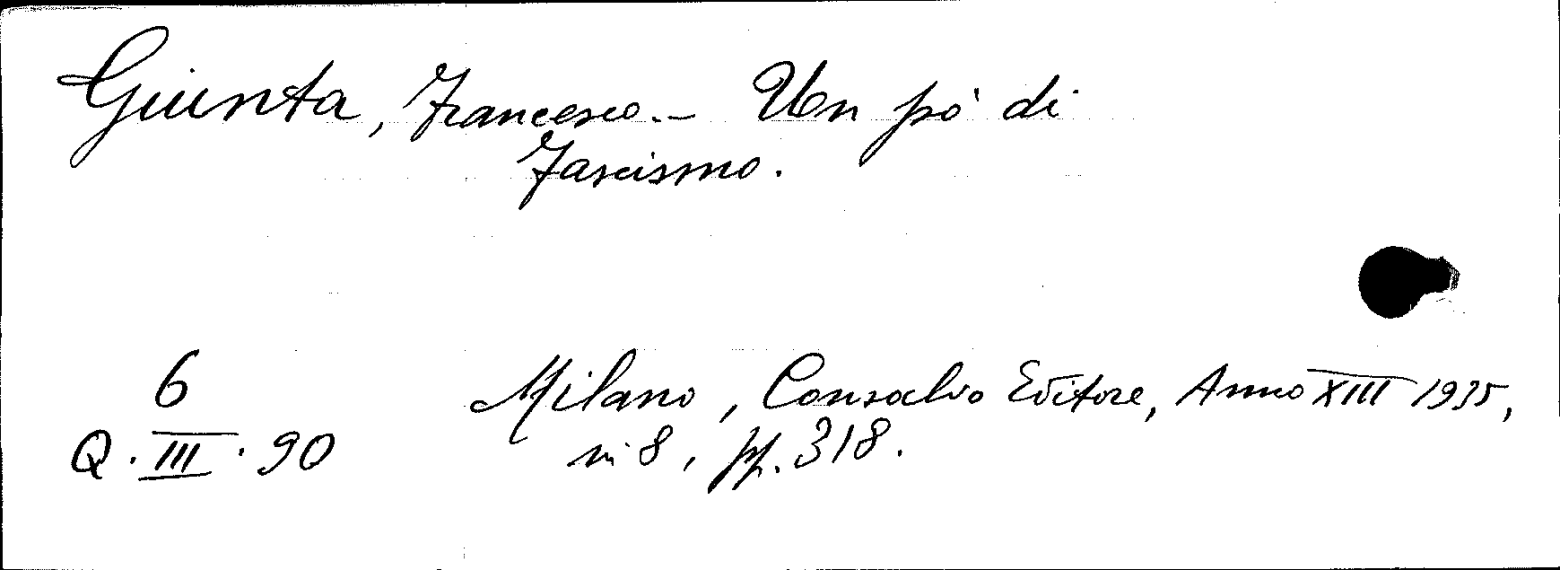 Giunta, Francesco. - Un pò di
Fascismo.
6
Q. III. 90
Milano, Consalvo Editore, Anno XIII 1935,
in 8, pp. 318.